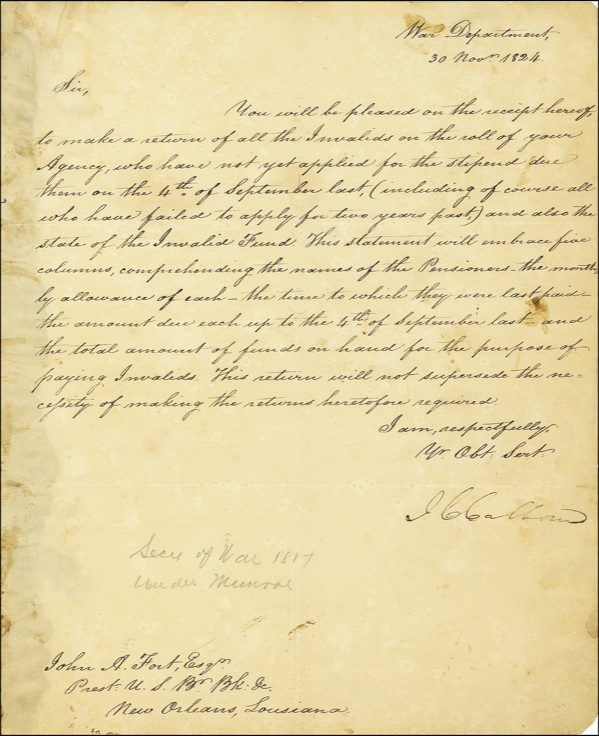 War Department,
30 Novr 1824.
Sir,
You will be pleased on the receipt hereof,
to make a return of all the Invalids on the roll of your
Agency, who have not yet applied for the stipend due
them on the 4th of September last, (including of course all
who have failed to apply for two years past,) and also the
state of the Invalid Fund. This statement will embrace five
columns, comprehending the names of the Pensioners - the month-
ly allowance of each - the time to which they were last paid -
the amount due each up to the 4th of September last - and
the total amount of funds on hand for the purpose of
paying Invalids. This return will not supersede the ne-
cessity of making the returns heretofore required.
I am, respectfully,
Yr. Obt. Sert.
J C Calhoun
Secy of War 1817
Under Munroe
John A. Fort, Esqr.
Prest. U. S. Br. Bk. &c.
New Orleans, Louisiana.